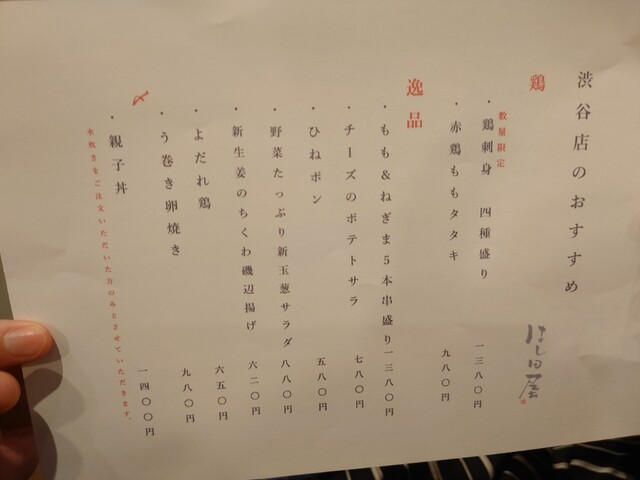 渋谷店のおすすめ
はし田屋
鶏
数量限定
・鶏刺身 四種盛り 一三八〇円
・赤鶏ももタタキ 九八〇円
逸品
・もも&ねぎま5本串盛り 一三八〇円
・チーズのポテトサラ 七八〇円
・ひねポン 五八〇円
・野菜たっぷり新玉葱サラダ 八八〇円
・新生姜のちくわ磯辺揚げ 六二〇円
・よだれ鶏 六五〇円
・う巻き卵焼き 九八〇円
〆
・親子丼 一四〇〇円
水炊きをご注文いただいた方のみとさせていただきます。